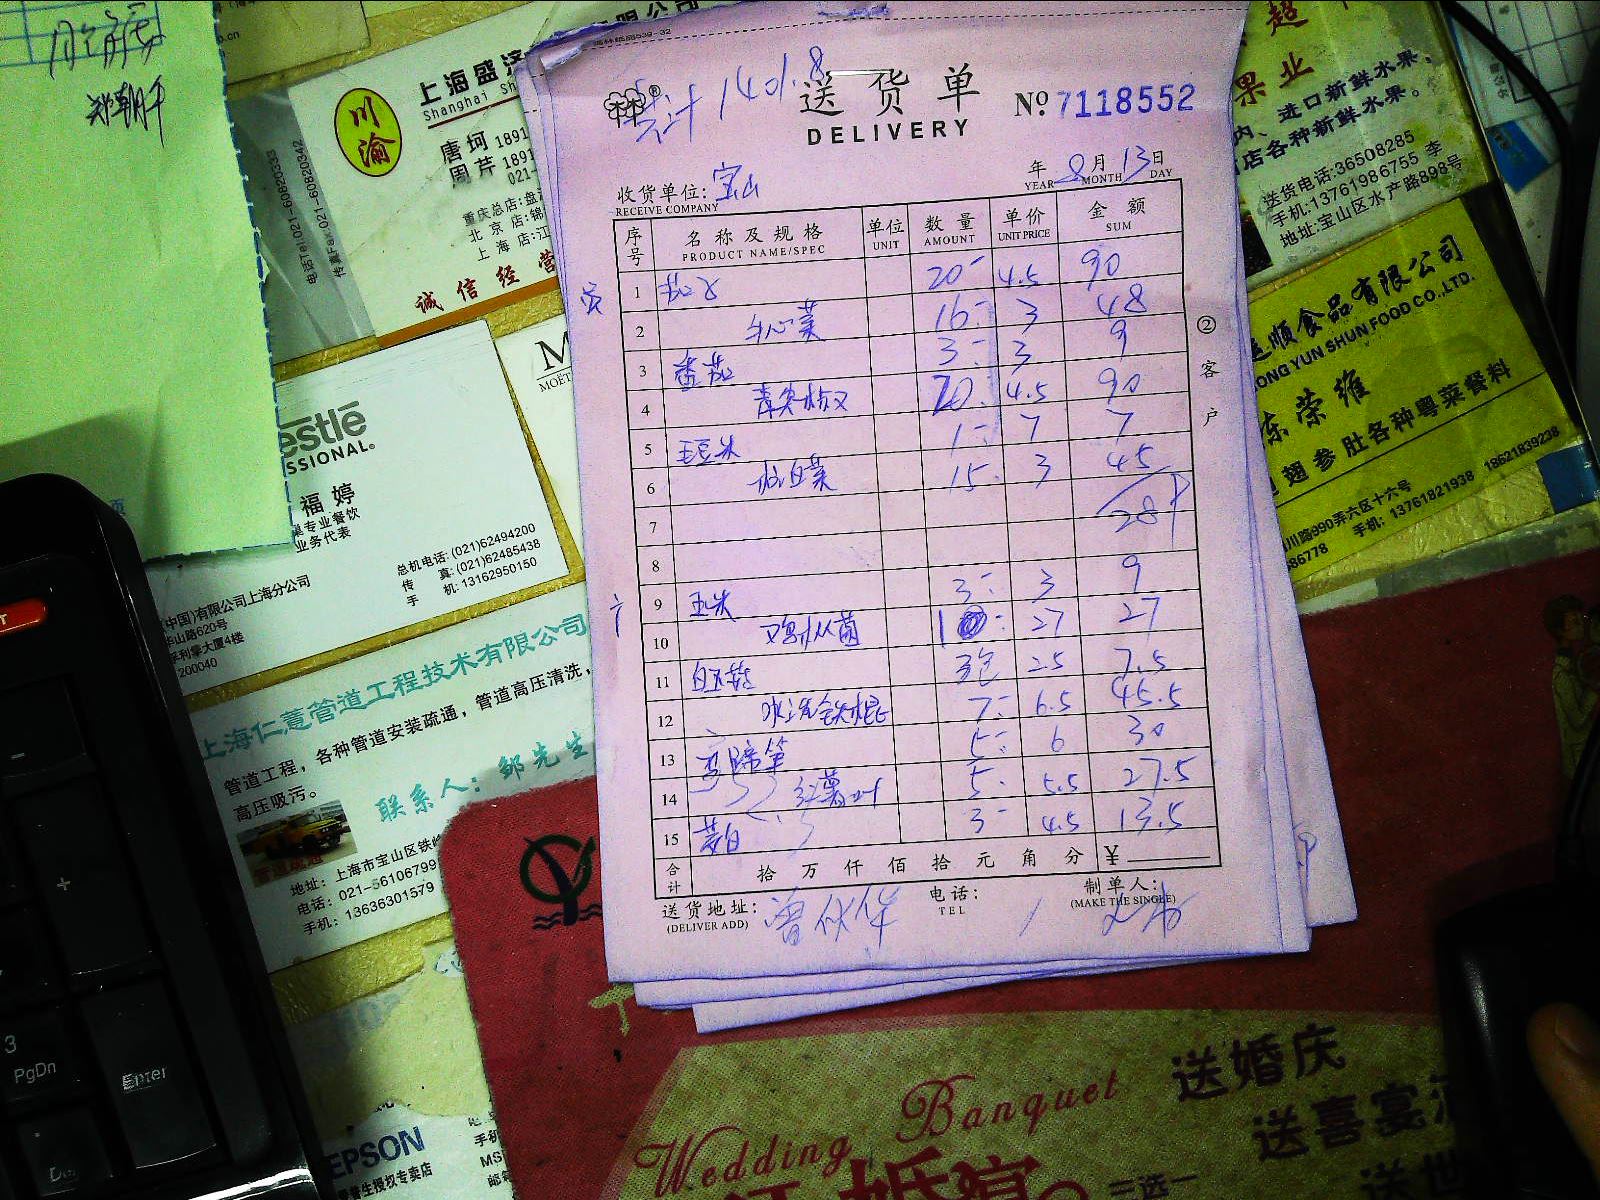 郑朝千
cn
川渝
上海盛济
Shanghai Sh
唐珂 1891
周芹 1891
021-
重庆总店:盘
北京店:锦
上海店:江
诚信经营
电话Tel:021-60820333
传真Fax:021-60820342
限公司
共计 1401.8
送货单
DELIVERY
No 7118552
收货单位: 宝山
RECEIVE COMPANY
年 8月 13日
YEAR MONTH DAY
序号 名称及规格 单位 数量 单价 金额
PRODUCT NAME/SPEC UNIT AMOUNT UNIT PRICE SUM
1 20 4.5 90
2 16 3 48
3 番茄 3 3 9
4 青尖椒 20 4.5 90
5 毛豆米 1 7 7
6 白菜 15 3 45
7 289
8
9 玉米 3 3 9
10 鸡从菌 1 27 27
11 白玉菇 3包 2.5 7.5
12 7 6.5 45.5
13 马蹄笋 5 6 30
14 红薯 5 5.5 27.5
15 茭白 3 4.5 13.5
合计 拾万仟佰拾元角分 ¥
送货地址:
(DELIVER ADD)
电话:
TEL
制单人:
(MAKE THE SINGLE)
②客户
超
果业
内、进口新鲜水果,
店各种新鲜水果。
送货电话:36508285
手机:13761986755 李
地址:宝山区水产路898号
顺食品有限公司
ONG YUN SHUN FOOD CO.,LTD.
东荣维
翅参肚各种粤菜餐料
川路990弄六区十六号
86778 手机: 13761821938 18621839238
M
MOËT
estlé
SSIONAL®
福婷
专业餐饮
业务代表
总机电话:(021)62494200
传 真:(021)62485438
手 机:13162950150
(中国)有限公司上海分公司
华山路620号
利擎大厦4楼
200040
上海仁薏管道工程技术有限公司
管道工程,各种管道安装疏通,管道高压清洗,
高压吸污。
联系人:邹先生
地址:上海市宝山区铁
电话:021-56106799
手机:13636301579
3
PgDn
Enter
EPSON
普生授权专卖店
手机
MS
邮箱
Wedding Banquet
送婚庆
送喜宴
送世
三选一